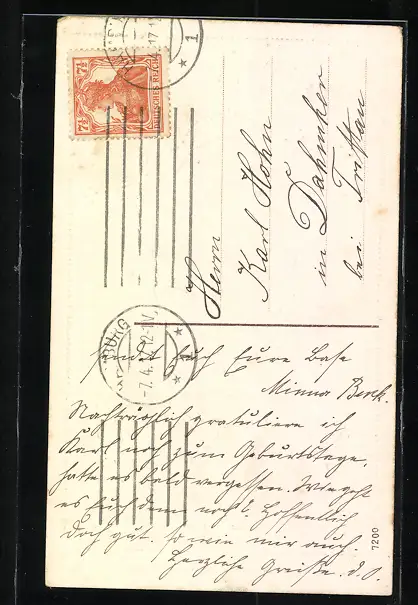 DEUTSCHES REICH
7½ 7½
Herrn
Karl Hohn
in Dahmker
bei Trittau
BURG
-7.4.17. 12-1 V.
sendet Euch Eure Base
Minna Benk.
Nachträglich gratuliere ich
Karl noch zum Geburtstage,
hatte es bald vergessen. Wie geht
es Euch denn noch? Hoffentlich
doch gut, so wie mir auch.
Herzliche Grüße. d. O.
7200